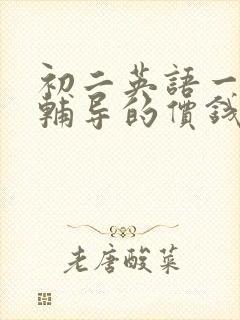 初二英語一
輔导的價錢
老唐酸菜